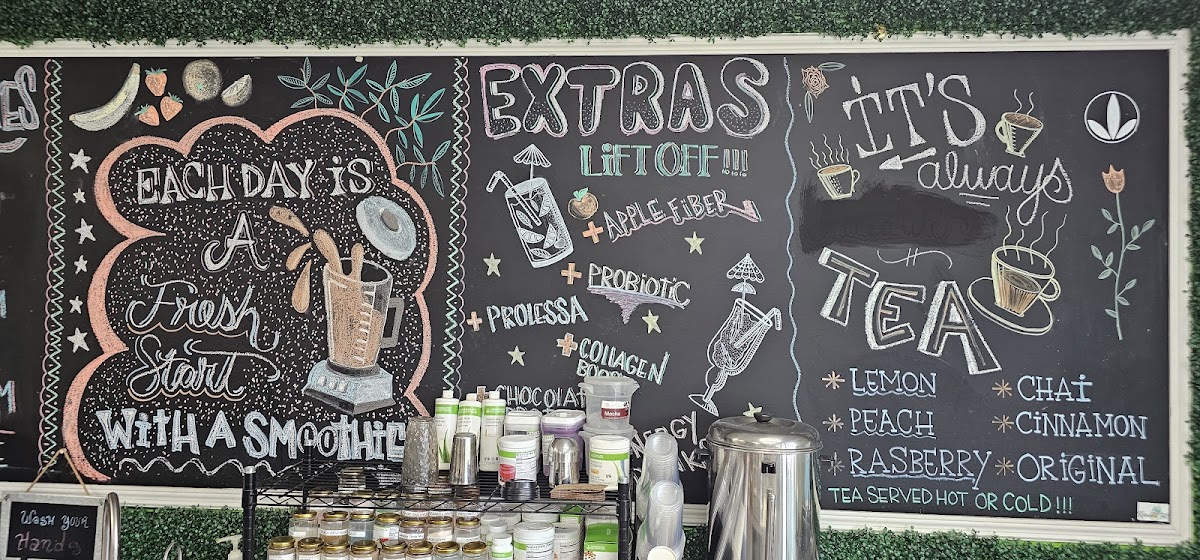 EACH DAY iS
A
Fresh
Start
WITH A SMOOTHIE
EXTRAS
LiFT OFF!!!
+ APPLE FiBER
+ PROBiOTiC
+ PROLESSA
+ COLLAGEN
CHOCOLAT
iT'S
always
TEA
* LEMON
* PEACH
* RASBERRY
* CHAi
* CiNNAMON
* ORiGiNAL
TEA SERVED HOT OR COLD!!!
WASH YOUR
Hands
Mocha